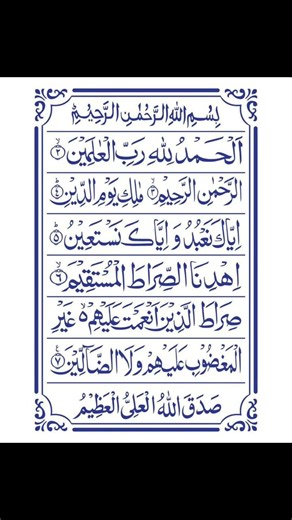 بِسْمِ اللهِ الرَّحْمٰنِ الرَّحِيْمِ
اَلْحَمْدُ لِلّٰهِ رَبِّ الْعٰلَمِيْنَ ۲
الرَّحْمٰنِ الرَّحِيْمِ ۳ مٰلِكِ يَوْمِ الدِّيْنِ ۴
اِيَّاكَ نَعْبُدُ وَ اِيَّاكَ نَسْتَعِيْنُ ۵
اِهْدِنَا الصِّرَاطَ الْمُسْتَقِيْمَ ۶
صِرَاطَ الَّذِيْنَ اَنْعَمْتَ عَلَيْهِمْ ۵ غَيْرِ
الْمَغْضُوْبِ عَلَيْهِمْ وَلَا الضَّآلِّيْنَ ۷
صَدَقَ اللهُ الْعَلِيُّ الْعَظِيْمُ